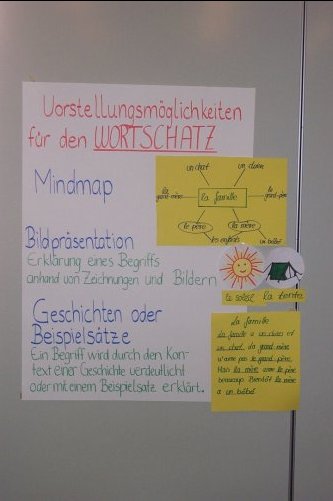 Vorstellungsmöglichkeiten
für den WORTSCHATZ
Mindmap
un chat
un chien
la grand-mère
la famille
le grand-père
le père
la mère
les enfants
un bébé
Bildpräsentation
Erklärung eines Begriffs
anhand von Zeichnungen und Bildern
le soleil
la tente
Geschichten oder
Beispielsätze
Ein Begriff wird durch den Kon-
text einer Geschichte verdeutlicht
oder mit einem Beispielsatz erklärt.
La famille
La famille a un chien et
un chat. La grand-mère
n'aime pas le grand-père.
Mais la mère aime le père
beaucoup. Bientôt la mère
a un bébé!